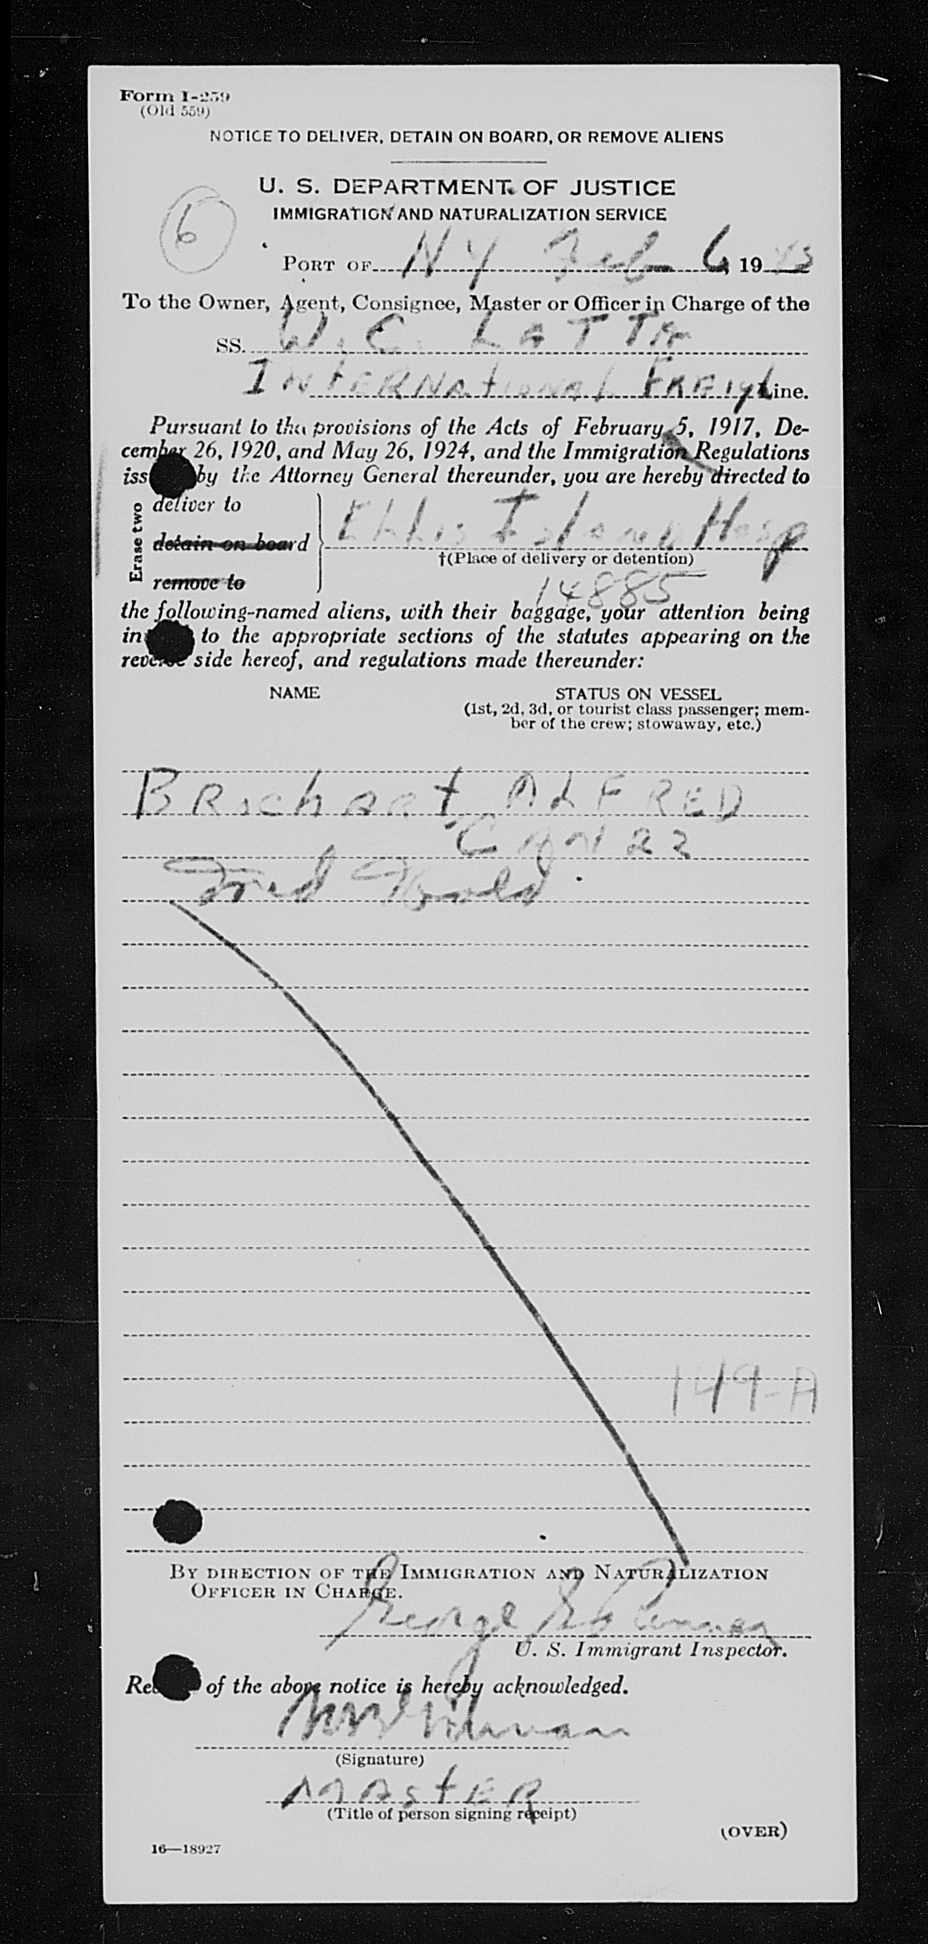 Form I-259
(Old 559)
NOTICE TO DELIVER, DETAIN ON BOARD, OR REMOVE ALIENS
U. S. DEPARTMENT OF JUSTICE
IMMIGRATION AND NATURALIZATION SERVICE
6
PORT OF NY Feb 6, 1943
To the Owner, Agent, Consignee, Master or Officer in Charge of the
SS. W. C. LATTA
INTERNATIONAL FREIGT Line.
Pursuant to the provisions of the Acts of February 5, 1917, De-
cember 26, 1920, and May 26, 1924, and the Immigration Regulations
iss by the Attorney General thereunder, you are hereby directed to
Erase two
deliver to
detain on board
remove to
Ellis Island Hosp
†(Place of delivery or detention)
14885
the following-named aliens, with their baggage, your attention being
in to the appropriate sections of the statutes appearing on the
reverse side hereof, and regulations made thereunder:
NAME STATUS ON VESSEL
(1st, 2d, 3d, or tourist class passenger; mem-
ber of the crew; stowaway, etc.)
ALFRED
CAN 22
Med Hold
149-A
BY DIRECTION OF THE IMMIGRATION AND NATURALIZATION
OFFICER IN CHARGE.
George
U. S. Immigrant Inspector.
Re of the above notice is hereby acknowledged.
(Signature)
MASTER
(Title of person signing receipt)
(OVER)
16—18927